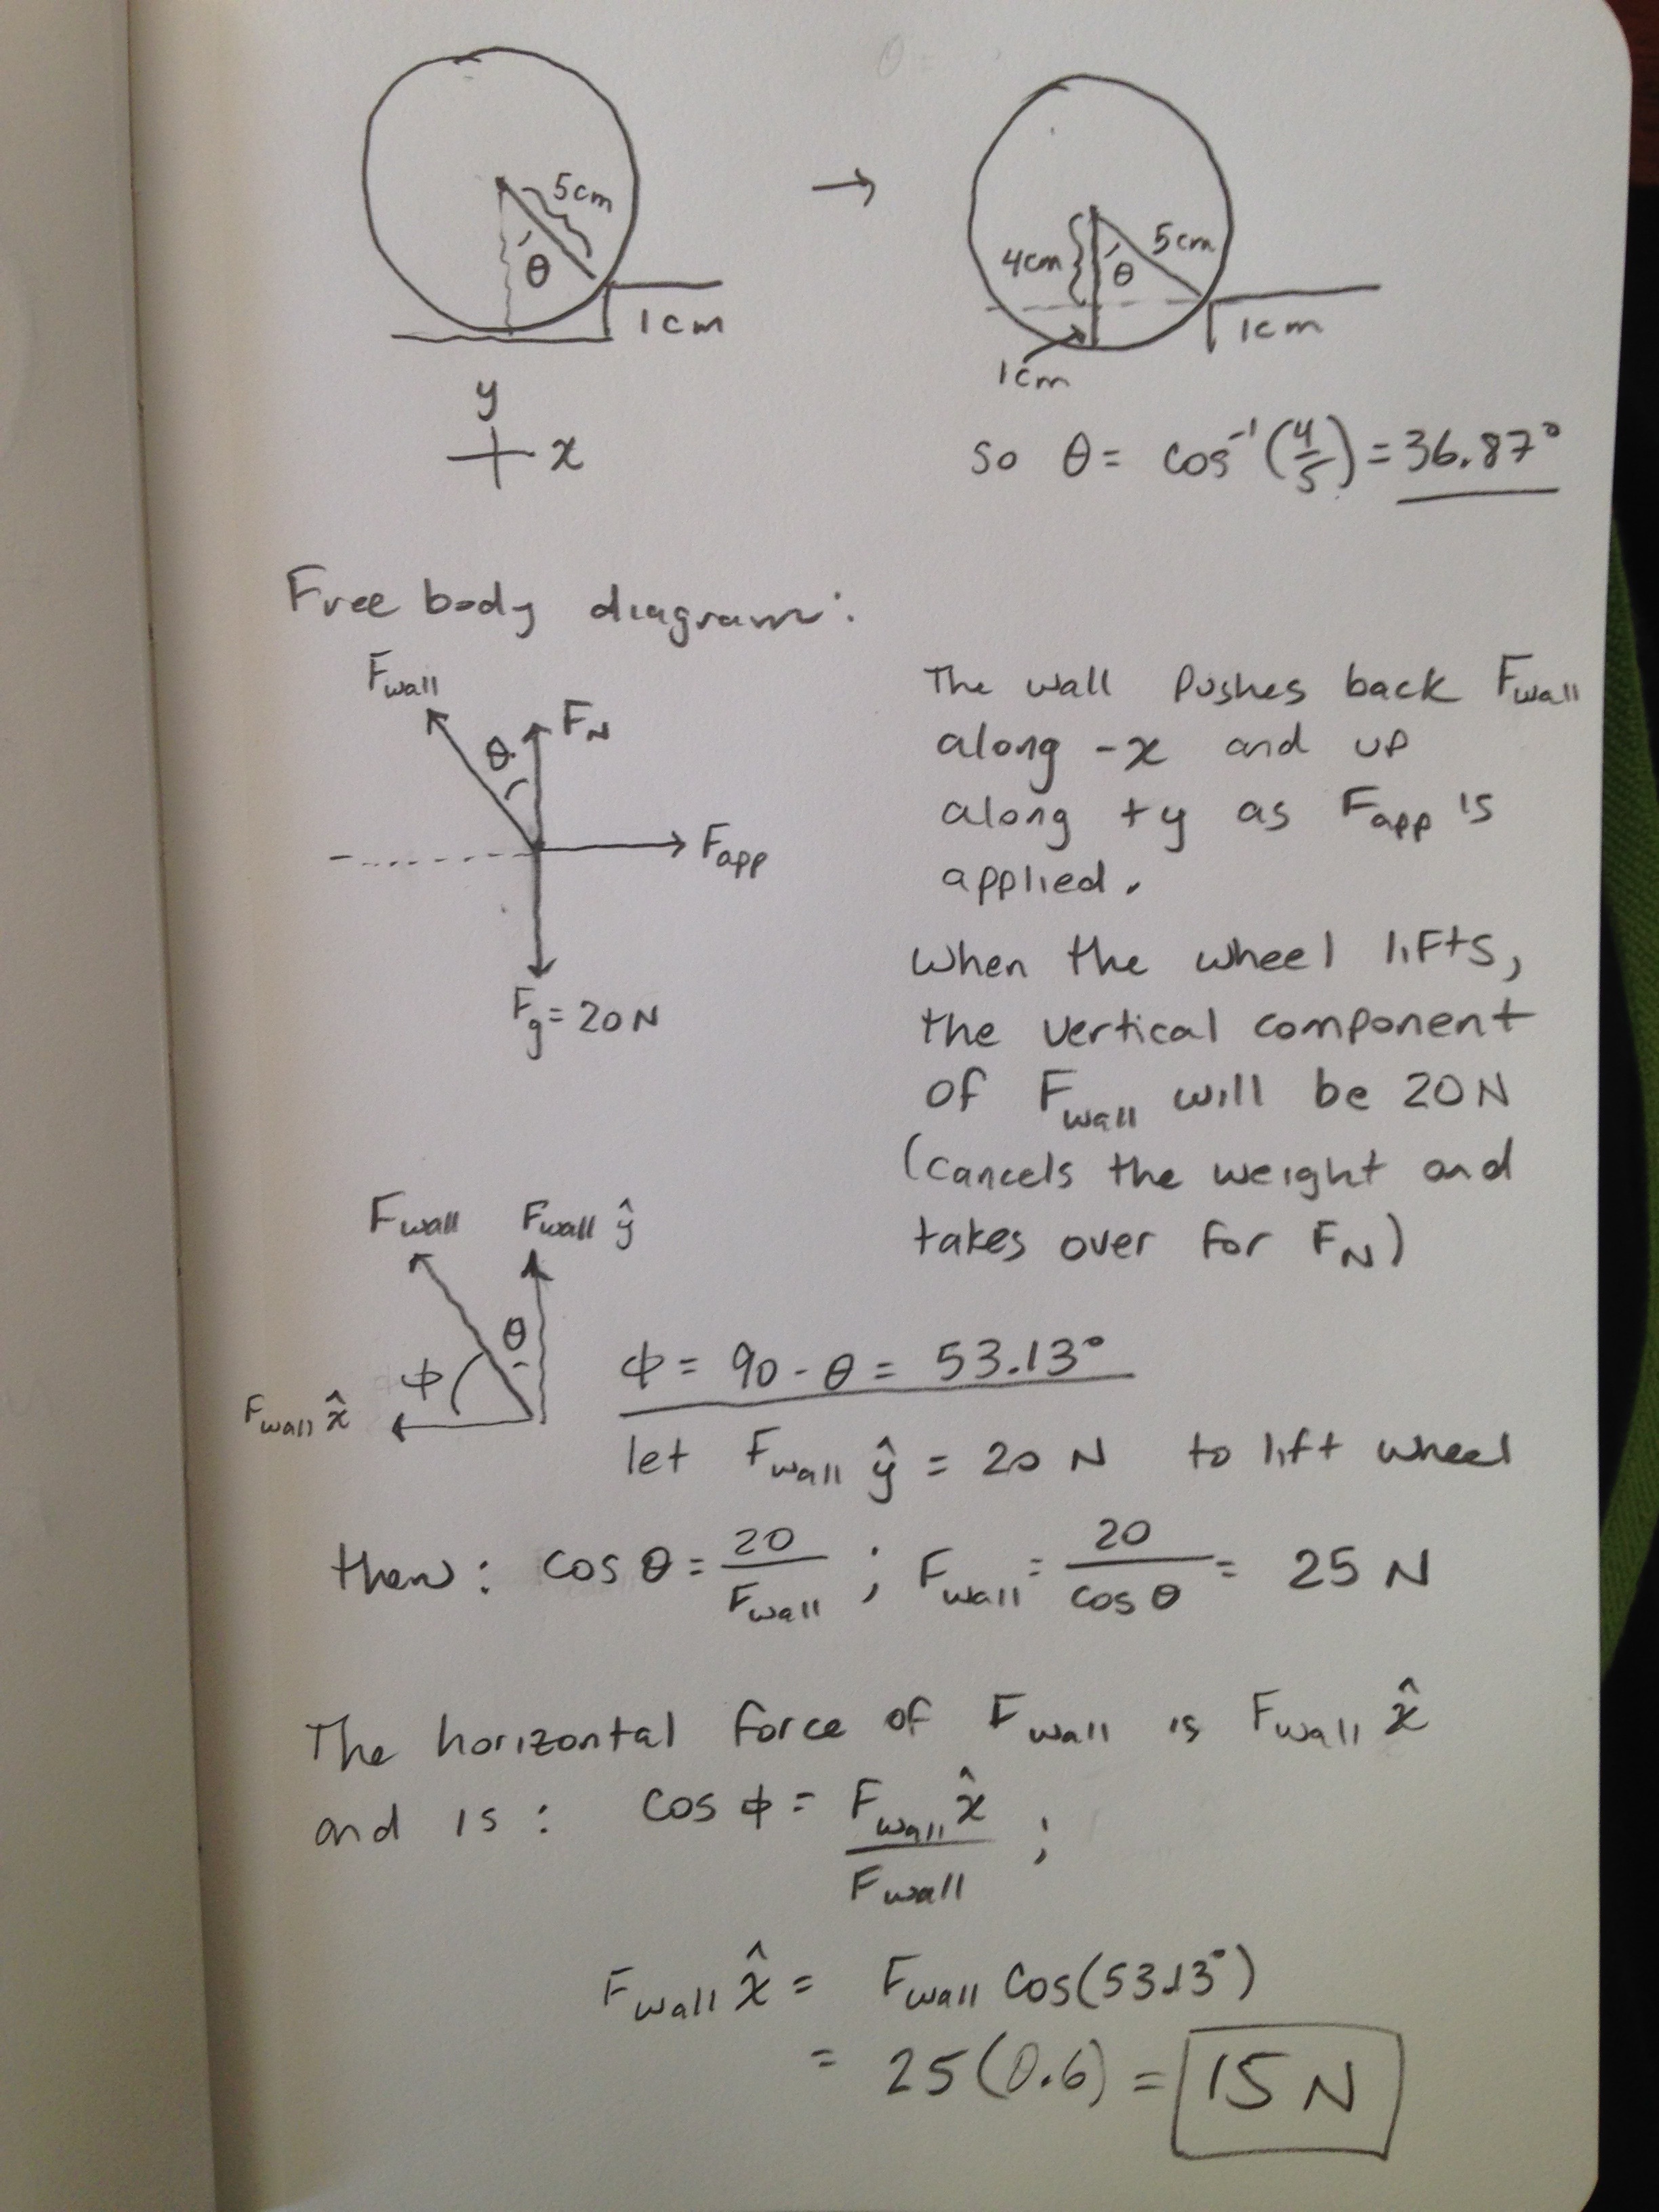 5cm
θ
1cm
→
4cm
5cm
θ
1cm
1cm
y
x
so θ = cos⁻¹(4/5) = 36.87°
Free body diagram:
Fwall
FN
θ
Fapp
Fg = 20N
The wall pushes back Fwall
along -x and up
along +y as Fapp is
applied.
When the wheel lifts,
the vertical component
of Fwall will be 20N
(cancels the weight and
takes over for FN)
Fwall Fwall ŷ
θ
ϕ
Fwall x̂
ϕ = 90 - θ = 53.13°
let Fwall ŷ = 20 N to lift wheel
then: cos θ = 20/Fwall ; Fwall = 20/cos θ = 25 N
The horizontal force of Fwall is Fwall x̂
and is: cos ϕ = Fwall x̂/Fwall ;
Fwall x̂ = Fwall cos(53.13°)
= 25(0.6) = 15 N